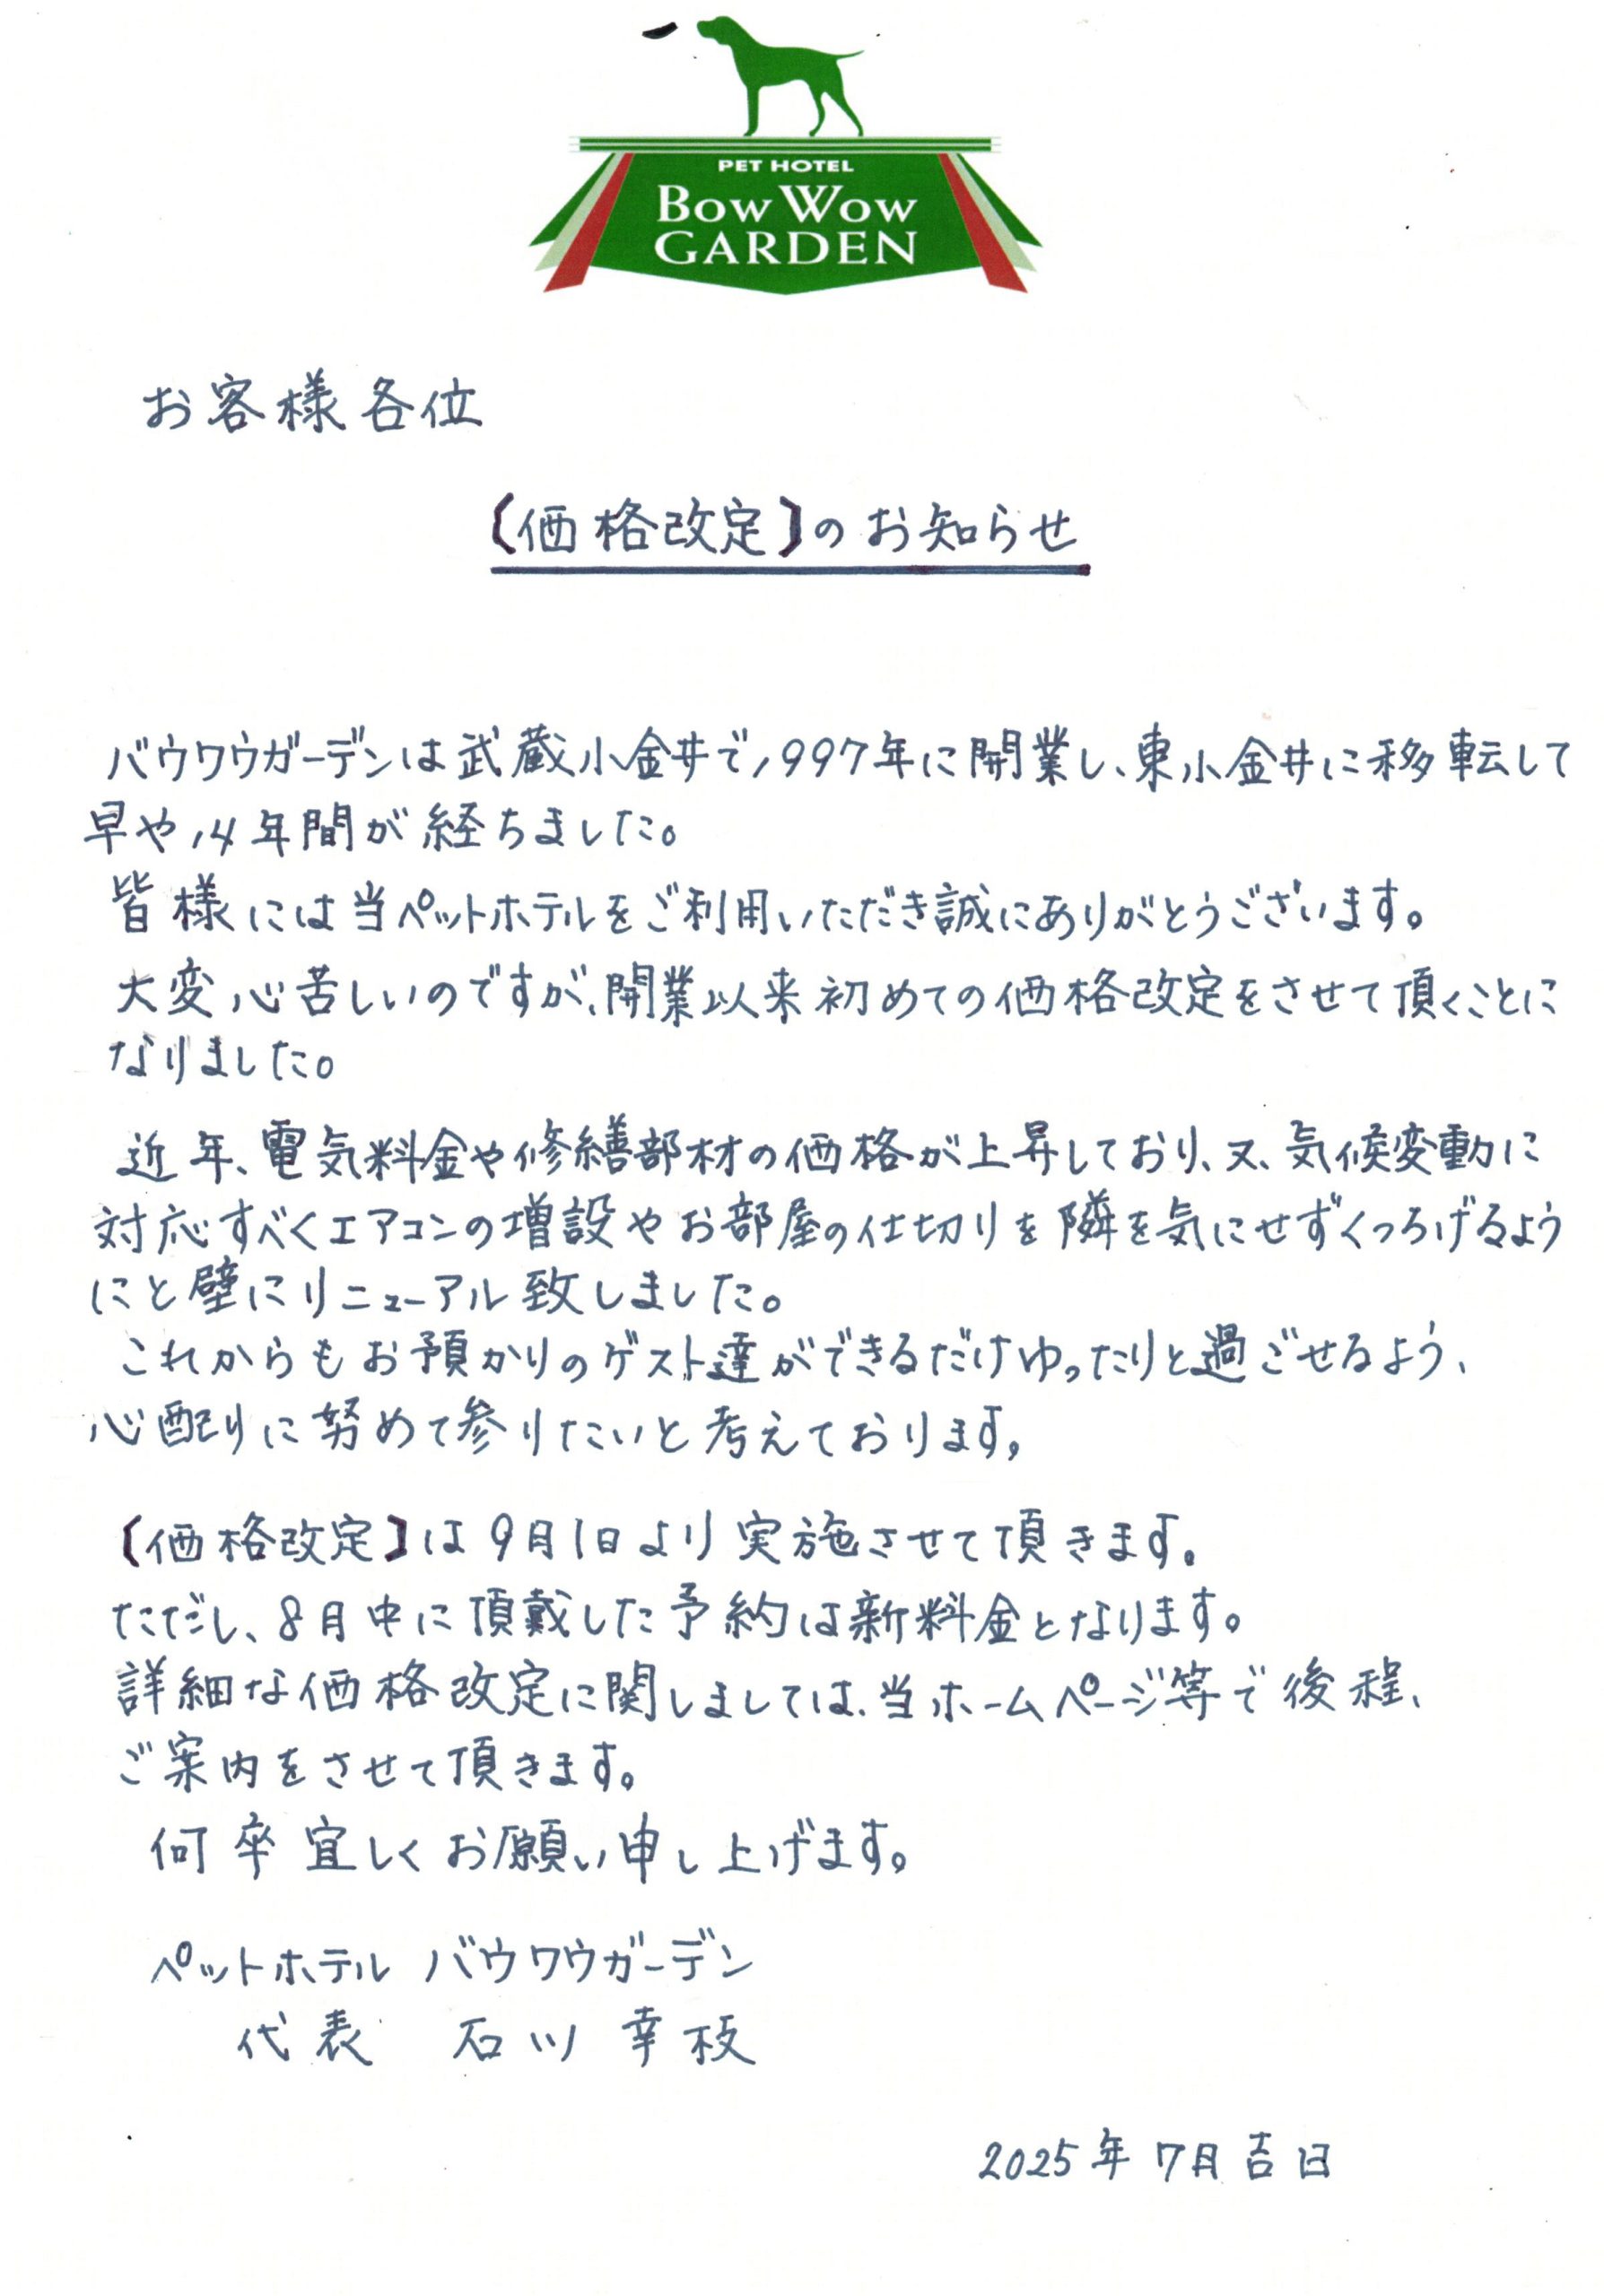 PET HOTEL
BOW WOW
GARDEN
お客様各位
【価格改定】のお知らせ
バウワウガーデンは武蔵小金井で1997年に開業し、東小金井に移転して
早や14年間が経ちました。
皆様には当ペットホテルをご利用いただき誠にありがとうございます。
大変心苦しいのですが、開業以来初めての価格改定をさせて頂くことに
なりました。
近年、電気料金や修繕部材の価格が上昇しており、又、気候変動に
対応すべくエアコンの増設やお部屋の仕切りを隣を気にせずくつろげるよう
にと壁にリニューアル致しました。
これからもお預かりのゲスト達ができるだけゆったりと過ごせるよう、
心配りに努めて参りたいと考えております。
【価格改定】は9月1日より実施させて頂きます。
ただし、8月中に頂戴した予約は新料金となります。
詳細な価格改定に関しましては、当ホームページ等で後程、
ご案内をさせて頂きます。
何卒宜しくお願い申し上げます。
ペットホテル バウワウガーデン
代表 石川 幸枝
2025年7月吉日